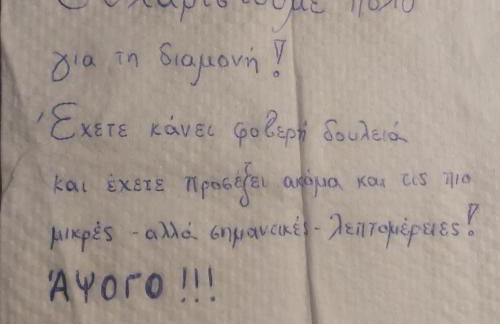 Ευχαριστούμε πολύ
για τη διαμονή!
Έχετε κάνει φοβερή δουλειά
και έχετε προσέξει ακόμα και τις πιο
μικρές - αλλά σημαντικές - λεπτομέρειες!
ΆΨΟΓΟ!!!